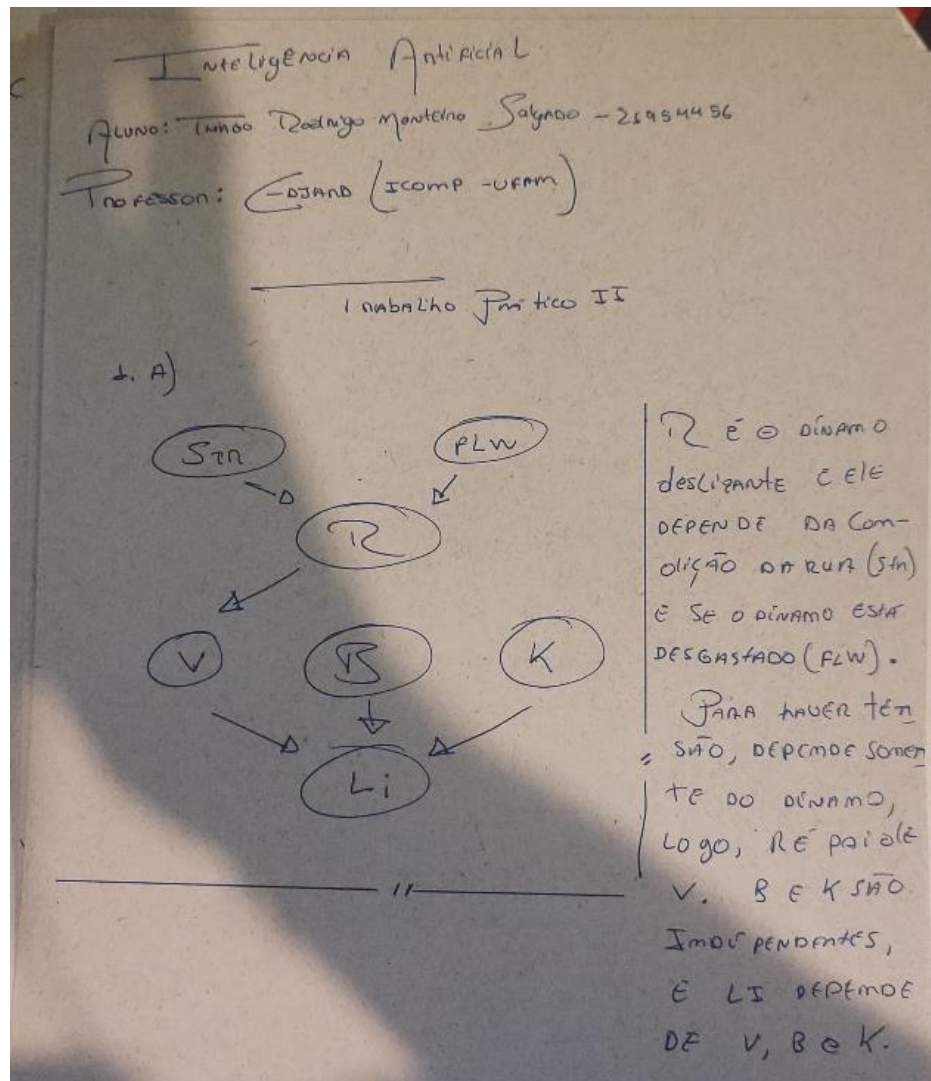 Inteligência Artificial
Aluno: Rodrigo Monteiro Salgado - 21954456
Professor: Edjard (ICOMP - UFAM)
Trabalho Prático II
1. A)
Str
FLW
R
V
B
K
Li
R É O DÍNAMO
deslizante E ELE
DEPENDE DA Con-
dição DA RUA (Str)
E SE O DÍNAMO ESTÁ
DESGASTADO (FLW).
PARA HAVER ten
SÃO, DEPENDE Somen
TE DO DÍNAMO,
Logo, R É pai de
V. B E K SÃO
Independentes,
E LI DEPENDE
DE V, B e K.